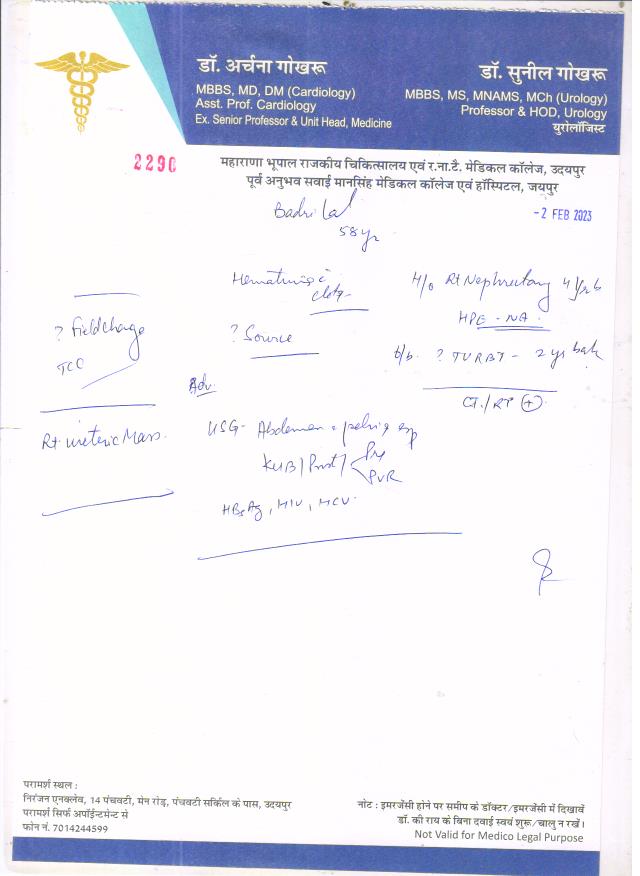 डॉ. अर्चना गोखरू
MBBS, MD, DM (Cardiology)
Asst. Prof. Cardiology
Ex. Senior Professor & Unit Head, Medicine
डॉ. सुनील गोखरू
MBBS, MS, MNAMS, MCh (Urology)
Professor & HOD, Urology
युरोलॉजिस्ट
2290
महाराणा भूपाल राजकीय चिकित्सालय एवं र.ना.टै. मेडिकल कॉलेज, उदयपुर
पूर्व अनुभव सवाई मानसिंह मेडिकल कॉलेज एवं हॉस्पिटल, जयपुर
-2 FEB 2023
Badri Lal
58 yr
Hematuria c̄
clots
? Source
H/o Rt Nephrectomy 4 yrs b
HPE - NA
? TURBT - 2 yrs back
CT/RT +
? Field change
TCC
Rt ureteric Mass.
Adv.
USG - Abdomen & pelvis esp
KUB/Prost/ Pre
PVR
HBsAg, HIV, HCV
परामर्श स्थल :
निरंजन एनक्लेव, 14 पंचवटी, मेन रोड़, पंचवटी सर्किल के पास, उदयपुर
परामर्श सिर्फ अपॉईन्टमेन्ट से
फोन नं. 7014244599
नोट : इमरजेंसी होने पर समीप के डॉक्टर/इमरजेंसी में दिखावें
डॉ. की राय के बिना दवाई स्वयं शुरू/चालु न रखें।
Not Valid for Medico Legal Purpose